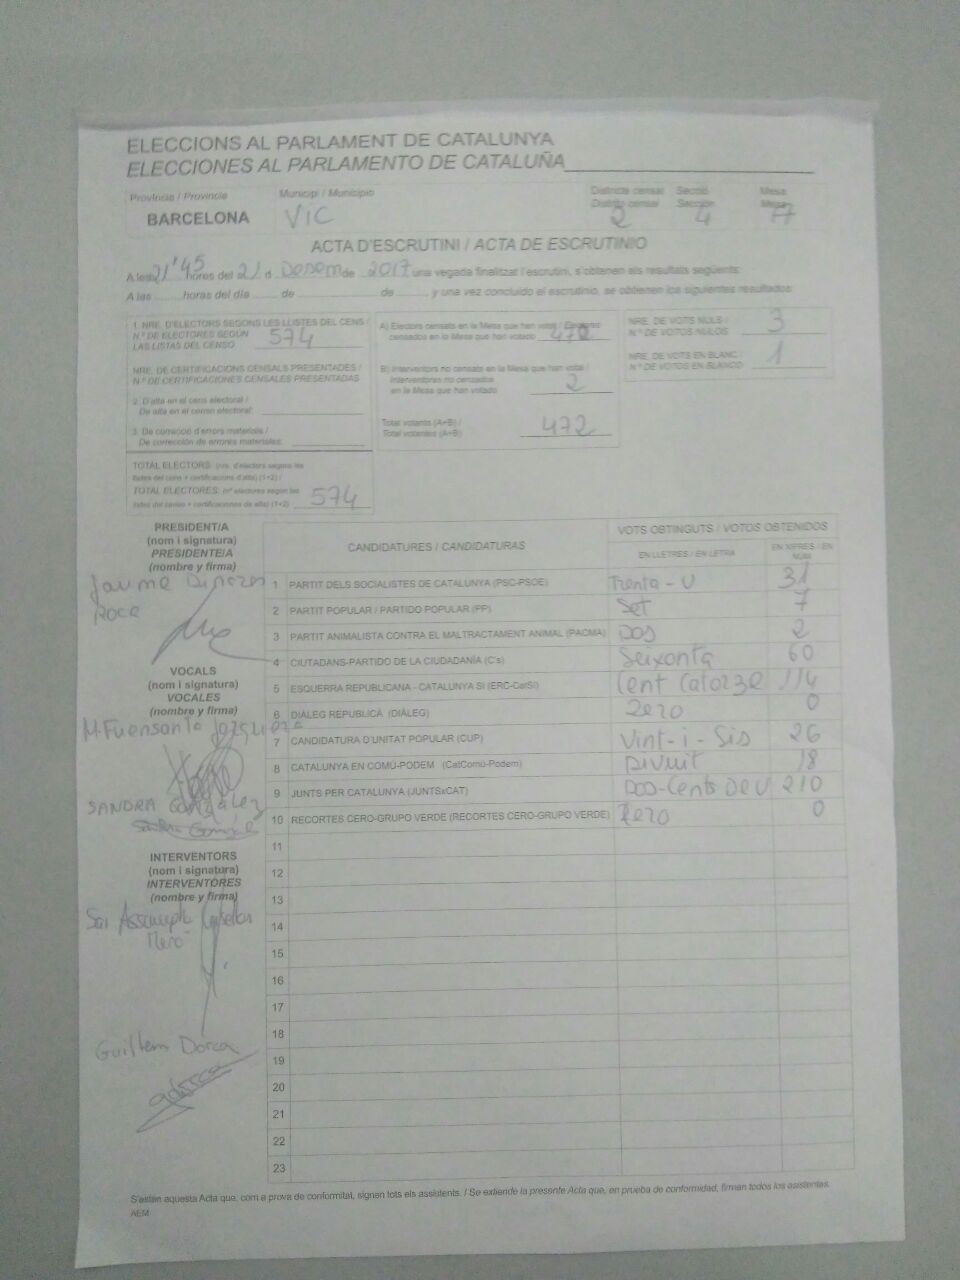 ELECCIONS AL PARLAMENT DE CATALUNYA
ELECCIONES AL PARLAMENTO DE CATALUÑA
Província / Provincia
BARCELONA
Municipi / Municipio
VIC
Districte censal Secció Mesa
Distrito censal Sección Mesa
2 4 A
ACTA D'ESCRUTINI / ACTA DE ESCRUTINIO
A les 21'45 hores del 21 d Desem de 2017 una vegada finalitzat l'escrutini, s'obtenen els resultats següents:
A las horas del día de de y una vez concluido el escrutinio, se obtienen los siguientes resultados:
1. NRE. D'ELECTORS SEGONS LES LLISTES DEL CENS /
N.º DE ELECTORES SEGÚN
LAS LISTAS DEL CENSO 574
NRE. DE CERTIFICACIONS CENSALS PRESENTADES /
N.º DE CERTIFICACIONES CENSALES PRESENTADAS
2. D'alta en el cens electoral /
De alta en el censo electoral:
3. De correcció d'errors materials /
De corrección de errores materiales:
TOTAL ELECTORS: (nre. d'electors segons les
llistes del cens + certificacions d'alta) (1+2) /
TOTAL ELECTORES: (nº electores según las
listas del censo + certificaciones de alta) (1+2) 574
A) Electors censats en la Mesa que han votat / Electores
censados en la Mesa que han votado
B) Interventors no censats en la Mesa que han votat /
Interventores no censados
en la Mesa que han votado 2
Total votants (A+B) /
Total votantes (A+B) 472
NRE. DE VOTS NULS /
N.º DE VOTOS NULOS 3
NRE. DE VOTS EN BLANC
N.º DE VOTOS EN BLANCO 1
PRESIDENT/A
(nom i signatura)
PRESIDENTE/A
(nombre y firma)
Jaume
Roca
VOCALS
(nom i signatura)
VOCALES
(nombre y firma)
M. Fuensanta
SANDRA González
INTERVENTORS
(nom i signatura)
INTERVENTORES
(nombre y firma)
Guillem Dorca
CANDIDATURES / CANDIDATURAS
VOTS OBTINGUTS / VOTOS OBTENIDOS
EN LLETRES / EN LETRA EN XIFRES / EN NÚM
1 PARTIT DELS SOCIALISTES DE CATALUNYA (PSC-PSOE) Trenta-U 31
2 PARTIT POPULAR / PARTIDO POPULAR (PP) Set 7
3 PARTIT ANIMALISTA CONTRA EL MALTRACTAMENT ANIMAL (PACMA) Dos 2
4 CIUTADANS-PARTIDO DE LA CIUDADANÍA (C's) Seixanta 60
5 ESQUERRA REPUBLICANA - CATALUNYA SÍ (ERC-CatSí) Cent Catorze 114
6 DIÀLEG REPUBLICÀ (DIÀLEG) Zero 0
7 CANDIDATURA D'UNITAT POPULAR (CUP) Vint-i-Sis 26
8 CATALUNYA EN COMÚ-PODEM (CatComú-Podem) Divuit 18
9 JUNTS PER CATALUNYA (JUNTSxCAT) Dos-Cents Deu 210
10 RECORTES CERO-GRUPO VERDE (RECORTES CERO-GRUPO VERDE) Zero 0
11
12
13
14
15
16
17
18
19
20
21
22
23
S'estén aquesta Acta que, com a prova de conformitat, signen tots els assistents. / Se extiende la presente Acta que, en prueba de conformidad, firman todos los asistentes.
AEM